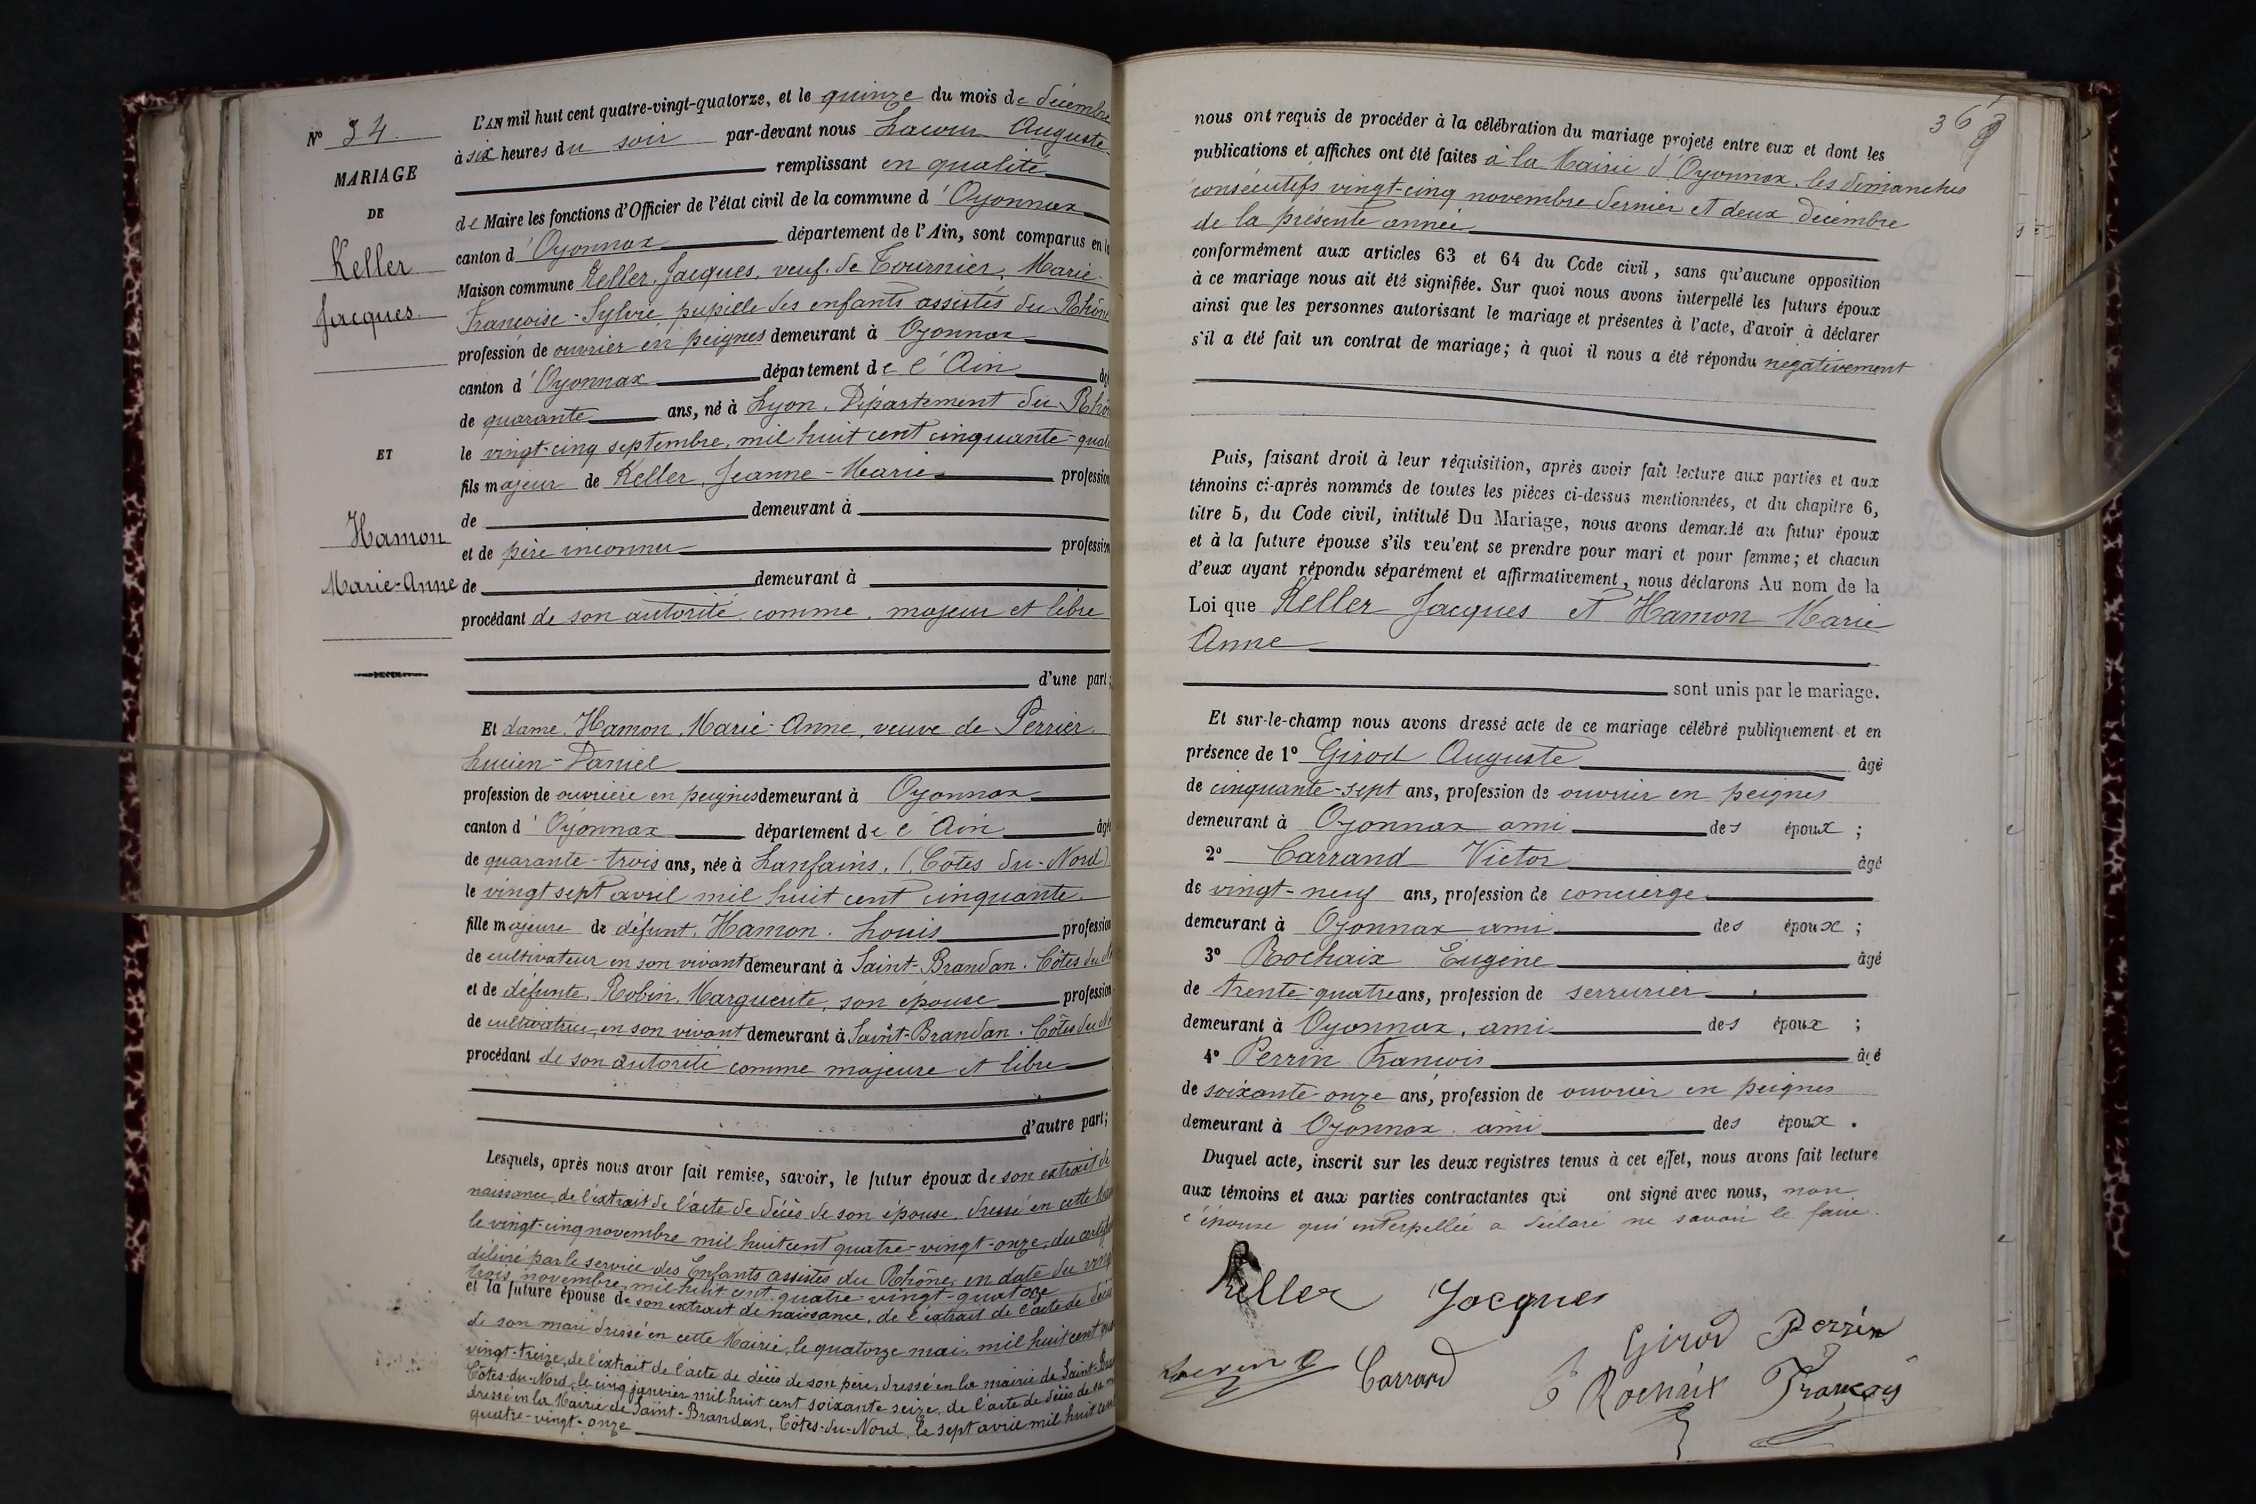 N° 34
MARIAGE
DE
Keller
Jacques
ET
Hamon
Marie-Anne
L'AN mil huit cent quatre-vingt-quatorze, et le quinze du mois de décembre
à six heures du soir par-devant nous Lacour Auguste
remplissant en qualité
de Maire les fonctions d'Officier de l'état civil de la commune d'Oyonnax
canton d'Oyonnax département de l'Ain, sont comparus en la
Maison commune Keller, Jacques, veuf de Tournier, Marie-
Françoise-Sylvie, pupille des enfants assistés du Rhône
profession de ouvrier en peignes demeurant à Oyonnax
canton d'Oyonnax département de l'Ain âgé
de quarante ans, né à Lyon, Département du Rhô
le vingt-cinq septembre, mil huit cent cinquante-quat
fils majeur de Keller, Jeanne-Marie profession
de demeurant à
et de père inconnu profession
de demeurant à
procédant de son autorité, comme, majeur et libre
d'une part;
Et dame, Hamon, Marie-Anne, veuve de Perrier
Lucien-Daniel
profession de ouvrière en peignes demeurant à Oyonnax
canton d'Oyonnax département de l'Ain âgé
de quarante-trois ans, née à Lanfains, (Côtes-du-Nord)
le vingt sept avril mil huit cent cinquante
fille majeure de défunt, Hamon, Louis profession
de cultivateur en son vivant demeurant à Saint-Brandan, Côtes du N
et de défunte, Robin, Marguerite, son épouse profession
de cultivatrice, en son vivant demeurant à Saint-Brandan, Côtes du N
procédant de son autorité comme majeure et libre
d'autre part;
Lesquels, après nous avoir fait remise, savoir, le futur époux de son extrait de
naissance, de l'extrait de l'acte de décès de son épouse, dressé en cette
le vingt-cinq novembre mil huit cent quatre-vingt-onze, du certif
délivré par le service des Enfants assistés du Rhône, en date du ving
trois novembre mil huit cent quatre-vingt-quatorze
et la future épouse de son extrait de naissance, de l'extrait de l'acte de décè
de son mari dressé en cette Mairie, le quatorze mai, mil huit cent qua
vingt-treize, de l'extrait de l'acte de décès de son père, dressé en la mairie de Saint-Bran
Côtes-du-Nord, le cinq janvier mil huit cent soixante seize, de l'acte de décès de sa m
dressé en la Mairie de Saint-Brandan, Côtes-du-Nord, le sept avril mil huit cent
quatre-vingt-onze
nous ont requis de procéder à la célébration du mariage projeté entre eux et dont les
publications et affiches ont été faites à la Mairie d'Oyonnax, les dimanches
consécutifs vingt-cinq novembre dernier et deux décembre
de la présente année
conformément aux articles 63 et 64 du Code civil, sans qu'aucune opposition
à ce mariage nous ait été signifiée. Sur quoi nous avons interpellé les futurs époux
ainsi que les personnes autorisant le mariage et présentes à l'acte, d'avoir à déclarer
s'il a été fait un contrat de mariage; à quoi il nous a été répondu négativement
Puis, faisant droit à leur réquisition, après avoir fait lecture aux parties et aux
témoins ci-après nommés de toutes les pièces ci-dessus mentionnées, et du chapitre 6,
titre 5, du Code civil, intitulé Du Mariage, nous avons demandé au futur époux
et à la future épouse s'ils veulent se prendre pour mari et pour femme; et chacun
d'eux ayant répondu séparément et affirmativement, nous déclarons Au nom de la
Loi que Keller Jacques et Hamon Marie
Anne
sont unis par le mariage.
Et sur-le-champ nous avons dressé acte de ce mariage célébré publiquement et en
présence de 1° Girod Auguste âgé
de cinquante-sept ans, profession de ouvrier en peignes
demeurant à Oyonnax ami des époux ;
2° Carrand Victor âgé
de vingt-neuf ans, profession de concierge
demeurant à Oyonnax ami des époux ;
3° Rochaix Eugène âgé
de trente-quatre ans, profession de serrurier
demeurant à Oyonnax, ami des époux ;
4° Perrin François âgé
de soixante-onze ans, profession de ouvrier en peignes
demeurant à Oyonnax, ami des époux.
Duquel acte, inscrit sur les deux registres tenus à cet effet, nous avons fait lecture
aux témoins et aux parties contractantes qui ont signé avec nous, non
l'épouse qui interpellée a déclaré ne savoir le faire.
Keller Jacques
Girod Perrin
Carrand E Rochaix François